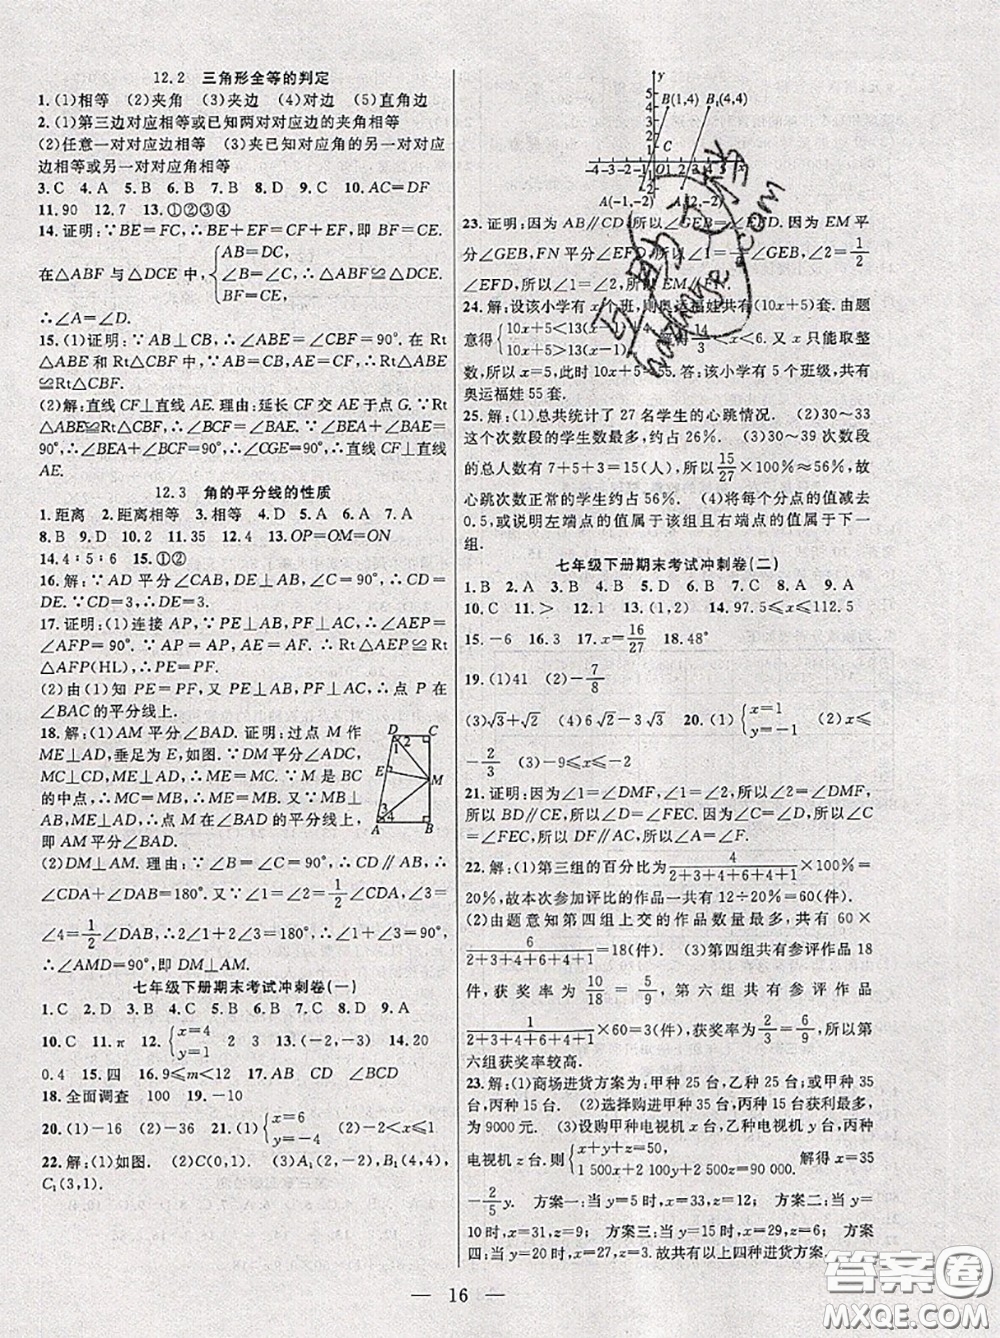 12.2 三角形全等的判定
1.(1)相等 (2)夹角 (3)夹边 (4)对边 (5)直角边
2.(1)第三边对应相等或已知两对对应边的夹角相等
(2)任意一对对应边相等 (3)夹已知对应角的另一对对应
边相等或另一对对应角相等
3.C 4.A 5.B 6.B 7.B 8.D 9.C 10.AC=DF
11.90 12.7 13.①②③④
14.证明:∵BE=FC,∴BE+EF=FC+EF,即BF=CE.
在△ABF与△DCE中,{AB=DC, ∠B=∠C, BF=CE. ∴△ABF≌△DCE.
∴∠A=∠D.
15.(1)证明:∵AB⊥CB,∴∠ABC=90°,在Rt
△ABE和Rt△CBF中,∵AB=CB,AE=CF,∴Rt△ABE
≌Rt△CBF.
(2)解:直线CF⊥直线AE.理由:延长CF交AE于点G.∵Rt
△ABE≌Rt△CBF,∴∠BCF=∠BAE.∵∠BAE+∠BEA=
90°,∴∠BEA+∠BCF=90°,∴∠CGE=90°,∴直线CF⊥直线
AE.
12.3 角的平分线的性质
1.距离 2.距离相等 3.相等 4.D 5.A 6.A 7.A
8.B 9.D 10.2 11.35 12.4 13.OP=OM=ON
14.4∶5∶6 15.①②
16.解:∵AD平分∠CAB,DE⊥AB,∠C=90°,∴CD=
DE.∵CD=3,∴DE=3.
17.证明:(1)连接AP,∵PE⊥AB,PF⊥AC,∴∠AEP=
∠AFP=90°.又∵AE=AF,AP=AP,∴Rt△AEP≌Rt
△AFP(HL),∴PE=PF.
(2)由(1)知PE=PF,又PE⊥AB,PF⊥AC,∴点P在
∠BAC的平分线上.
18.解:(1)AM平分∠BAD.证明:过点M作
ME⊥AD,垂足为E,如图.∵DM平分∠ADC,
MC⊥CD,ME⊥AD,∴MC=ME.∵M是BC
的中点,∴MC=MB.∴MB=ME.又∵MB⊥AB,
ME⊥AD,∴点M在∠BAD的平分线上,
即AM平分∠BAD.
(2)DM⊥AM.理由:∵∠B=∠C=90°,∴CD∥AB,∴
∠CDA+∠DAB=180°.又∵∠1=∠2=1/2∠CDA,∠3=
∠4=1/2∠DAB,∴2∠1+2∠3=180°,∴∠1+∠3=90°,∴
∠AMD=90°,即DM⊥AM.
七年级下册期末考试冲刺卷(一)
1.C 2.D 3.D 4.C 5.B 6.B 7.C 8.D 9.A
10.C 11.π 12.{x=4 y=1 2 3 13.(-2,-3) 14.20
0.4 15.四 16.9≤m<12 17.AB CD ∠BCD
18.全面调查 100 19.-10
20.(1)-16 (2)-36 21.(1){x=6 y=1 (2)-2<x≤1
22.解:(1)如图. (2)C(0,1). (3)A₁(2,-2),B₁(4,4),
C₁(3,1).
D C E M A B 1 2 3 4
y
5 4 3 2 1
B(1,4) B₁(4,4)
C
-4-3-2-1 O 1 2 3 4 5 x
A(-1,-2) A₁(2,-2)
23.证明:因为AB∥CD,所以∠GEB=∠EFD.因为EM平
分∠GEB,FN平分∠EFD,所以∠1=1/2∠GEB,∠2=1/2
∠EFD,所以∠1=∠2,所以EM∥FN.
24.解:设该小学有x个班,则奥运福娃共有(10x+5)套.由题
数,所以x=5,此时10x+5=55.答:该小学有5个班级,共有
奥运福娃55套.
25.解:(1)总共统计了27名学生的心跳情况. (2)30~33
这个次数段的学生数最多,约占26%. (3)30~39次数段
的总人数有7+5+3=15(人),所以15/27×100%≈56%,故
心跳次数正常的学生约占56%. (4)将每个分点的值减去
0.5,或说明左端点的值属于该组且右端点的值属于下一
组.
七年级下册期末考试冲刺卷(二)
1.B 2.A 3.C 4.D 5.C 6.D 7.A 8.A 9.A
10.C 11.> 12.1 13.(1,2) 14.97.5≤x≤112.5
15.-6 16.3 17.x=16/27 18.48°
19.(1)41 (2)-7/8
(3)√3+√2 (4)6√2-√3 20.(1){x=1 y=-1 (2)x≤
-2/3 (3)-9≤x≤-2
21.证明:因为∠1=∠DMF,∠1=∠2,所以∠2=∠DMF,
所以BD∥CE,所以∠D=∠FEC.又因为∠C=∠D,所以∠C
=∠FEC,所以DF∥AC,所以∠A=∠F.
22.解:(1)第三组的百分比为4/(2+3+4+6+4+1)×100%=
20%,故本次参加评比的作品一共有12÷20%=60(件).
(2)由题意知第四组上交的作品数量最多,共有60×
6/(2+3+4+6+4+1)=18(件). (3)第四组共有参评作品18
件,获奖率为10/18=5/9,第六组共有参评作品
1/(2+3+4+6+4+1)×60=3(件),获奖率为2/3=6/9,所以第
六组获奖率较高.
23.解:(1)商场进货方案为:甲种25台,乙种25台;甲种35台,
丙种15台. (2)选择购进甲种35台,丙种15台获利最多,
为9000元. (3)设购进甲种电视机x台,乙种电视机y台,丙种
电视机z台.则{x+y+z=50, 1 500x+2 100y+2 500z=90 000, 解得x=35
-2/5y. 方案一:当y=5时,x=33,z=12;方案二:当y=
10时,x=31,z=9;方案三:当y=15时,x=29,z=6;方案
四:当y=20时,x=27,z=3.故共有以上四种进货方案.
16
答案圈
MXQE.COM